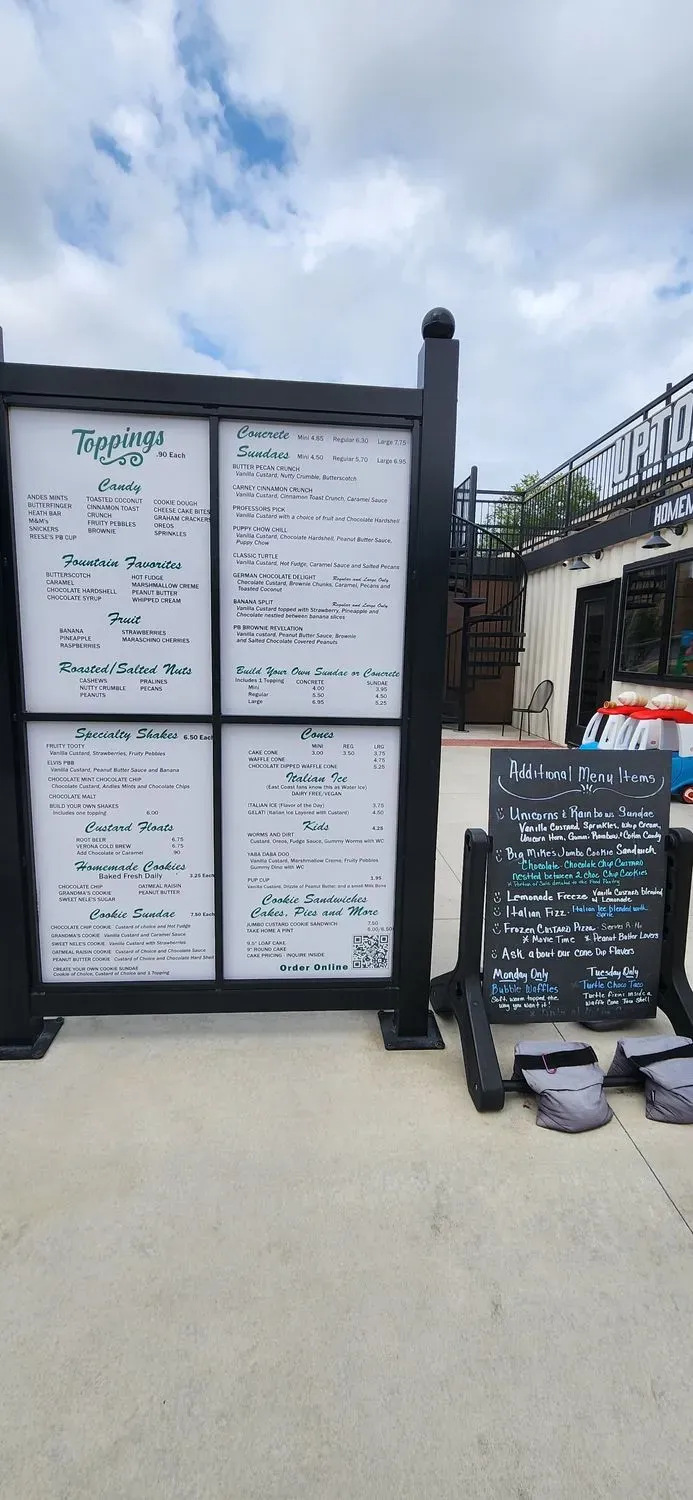 Toppings
.90 Each
Candy
ANDES MINTS
BUTTERFINGER
HEATH BAR
M&M's
SNICKERS
REESE'S PB CUP
TOASTED COCONUT
CINNAMON TOAST
CRUNCH
FRUITY PEBBLES
BROWNIE
COOKIE DOUGH
CHEESE CAKE BITES
GRAHAM CRACKERS
OREOS
SPRINKLES
Fountain Favorites
BUTTERSCOTCH
CARAMEL
CHOCOLATE HARDSHELL
CHOCOLATE SYRUP
HOT FUDGE
MARSHMALLOW CREME
PEANUT BUTTER
WHIPPED CREAM
Fruit
BANANA
PINEAPPLE
RASPBERRIES
STRAWBERRIES
MARASCHINO CHERRIES
Roasted/Salted Nuts
CASHEWS
NUTTY CRUMBLE
PEANUTS
PRALINES
PECANS
Concrete Mini 4.85 Regular 6.30 Large 7.75
Sundaes Mini 4.50 Regular 5.70 Large 6.95
BUTTER PECAN CRUNCH
Vanilla Custard, Nutty Crumble, Butterscotch
CARNEY CINNAMON CRUNCH
Vanilla Custard, Cinnamon Toast Crunch, Caramel Sauce
PROFESSORS PICK
Vanilla Custard with a choice of fruit and Chocolate Hardshell
PUPPY CHOW CHILL
Vanilla Custard, Chocolate Hardshell, Peanut Butter Sauce,
Puppy Chow
CLASSIC TURTLE
Vanilla Custard, Hot Fudge, Caramel Sauce and Salted Pecans
GERMAN CHOCOLATE DELIGHT Regular and Large Only
Chocolate Custard, Brownie Chunks, Caramel, Pecans and
Toasted Coconut
BANANA SPLIT Regular and Large Only
Vanilla Custard topped with Strawberry, Pineapple and
Chocolate nestled between banana slices
PB BROWNIE REVELATION
Vanilla custard, Peanut Butter Sauce, Brownie
and Salted Chocolate Covered Peanuts
Build Your Own Sundae or Concrete
Includes 1 Topping CONCRETE SUNDAE
Mini 4.00 3.95
Regular 5.50 4.50
Large 6.95 5.25
Specialty Shakes 6.50 Each
FRUITY TOOTY
Vanilla Custard, Strawberries, Fruity Pebbles
ELVIS PBB
Vanilla Custard, Peanut Butter Sauce and Banana
CHOCOLATE MINT CHOCOLATE CHIP
Chocolate Custard, Andies Mints and Chocolate Chips
CHOCOLATE MALT
BUILD YOUR OWN SHAKES
Includes one topping 6.00
Custard Floats
ROOT BEER 6.75
VERONA COLD BREW 6.75
Add Chocolate or Caramel .90
Homemade Cookies
Baked Fresh Daily 3.25 Each
CHOCOLATE CHIP
GRANDMA'S COOKIE
SWEET NELE'S SUGAR
OATMEAL RAISIN
PEANUT BUTTER
Cookie Sundae 7.50 Each
CHOCOLATE CHIP COOKIE Custard of choice and Hot Fudge
GRANDMA'S COOKIE Vanilla Custard and Caramel Sauce
SWEET NELE'S COOKIE Vanilla Custard with Strawberries
OATMEAL RAISIN COOKIE Custard of Choice and Chocolate Sauce
PEANUT BUTTER COOKIE Custard of Choice and Chocolate Hard Shell
CREATE YOUR OWN COOKIE SUNDAE
Cookie of Choice, Custard of Choice and 1 Topping
Cones
MINI REG LRG
CAKE CONE 3.00 3.50 3.75
WAFFLE CONE 4.75
CHOCOLATE DIPPED WAFFLE CONE 5.25
Italian Ice
(East Coast fans know this as Water Ice)
DAIRY FREE/VEGAN
ITALIAN ICE (Flavor of the Day) 3.75
GELATI (Italian Ice Layered with Custard) 4.50
Kids 4.25
WORMS AND DIRT
Custard, Oreos, Fudge Sauce, Gummy Worms with WC
YABA DABA DOO
Vanilla Custard, Marshmallow Creme, Fruity Pebbles
Gummy Dino with WC
PUP CUP 1.95
Vanilla Custard, Drizzle of Peanut Butter, and a small Milk Bone
Cookie Sandwiches
Cakes, Pies and More
JUMBO CUSTARD COOKIE SANDWICH 7.50
TAKE HOME A PINT 6.00/6.50
9.5" LOAF CAKE
9" ROUND CAKE
CAKE PRICING - INQUIRE INSIDE
Order Online
UPTO
HOMEM
Additional Menu Items
Unicorns & Rainbows Sundae
Vanilla Custard, Sprinkles, Whip Cream,
Unicorn Horn, Gummi Rainbow, Cotton Candy
Big Mike's Jumbo Cookie Sandwich
Chocolate-Chocolate Chip Custard
nestled between 2 Choc Chip Cookies
* Portion of Sale donated to the Food Pantry
Lemonade Freeze Vanilla Custard blended
w/ Lemonade
Italian Fizz - Italian Ice blended with
Sprite
Frozen Custard Pizza - Serves 8-10
* Movie Time * Peanut Butter Lovers
Ask about our Cone Dip flavors
Monday Only
Bubble Waffles
Soft warm topped the
way you want it!
Tuesday Only
Turtle Choco Taco
Turtle fixins inside a
Waffle Cone Taco Shell